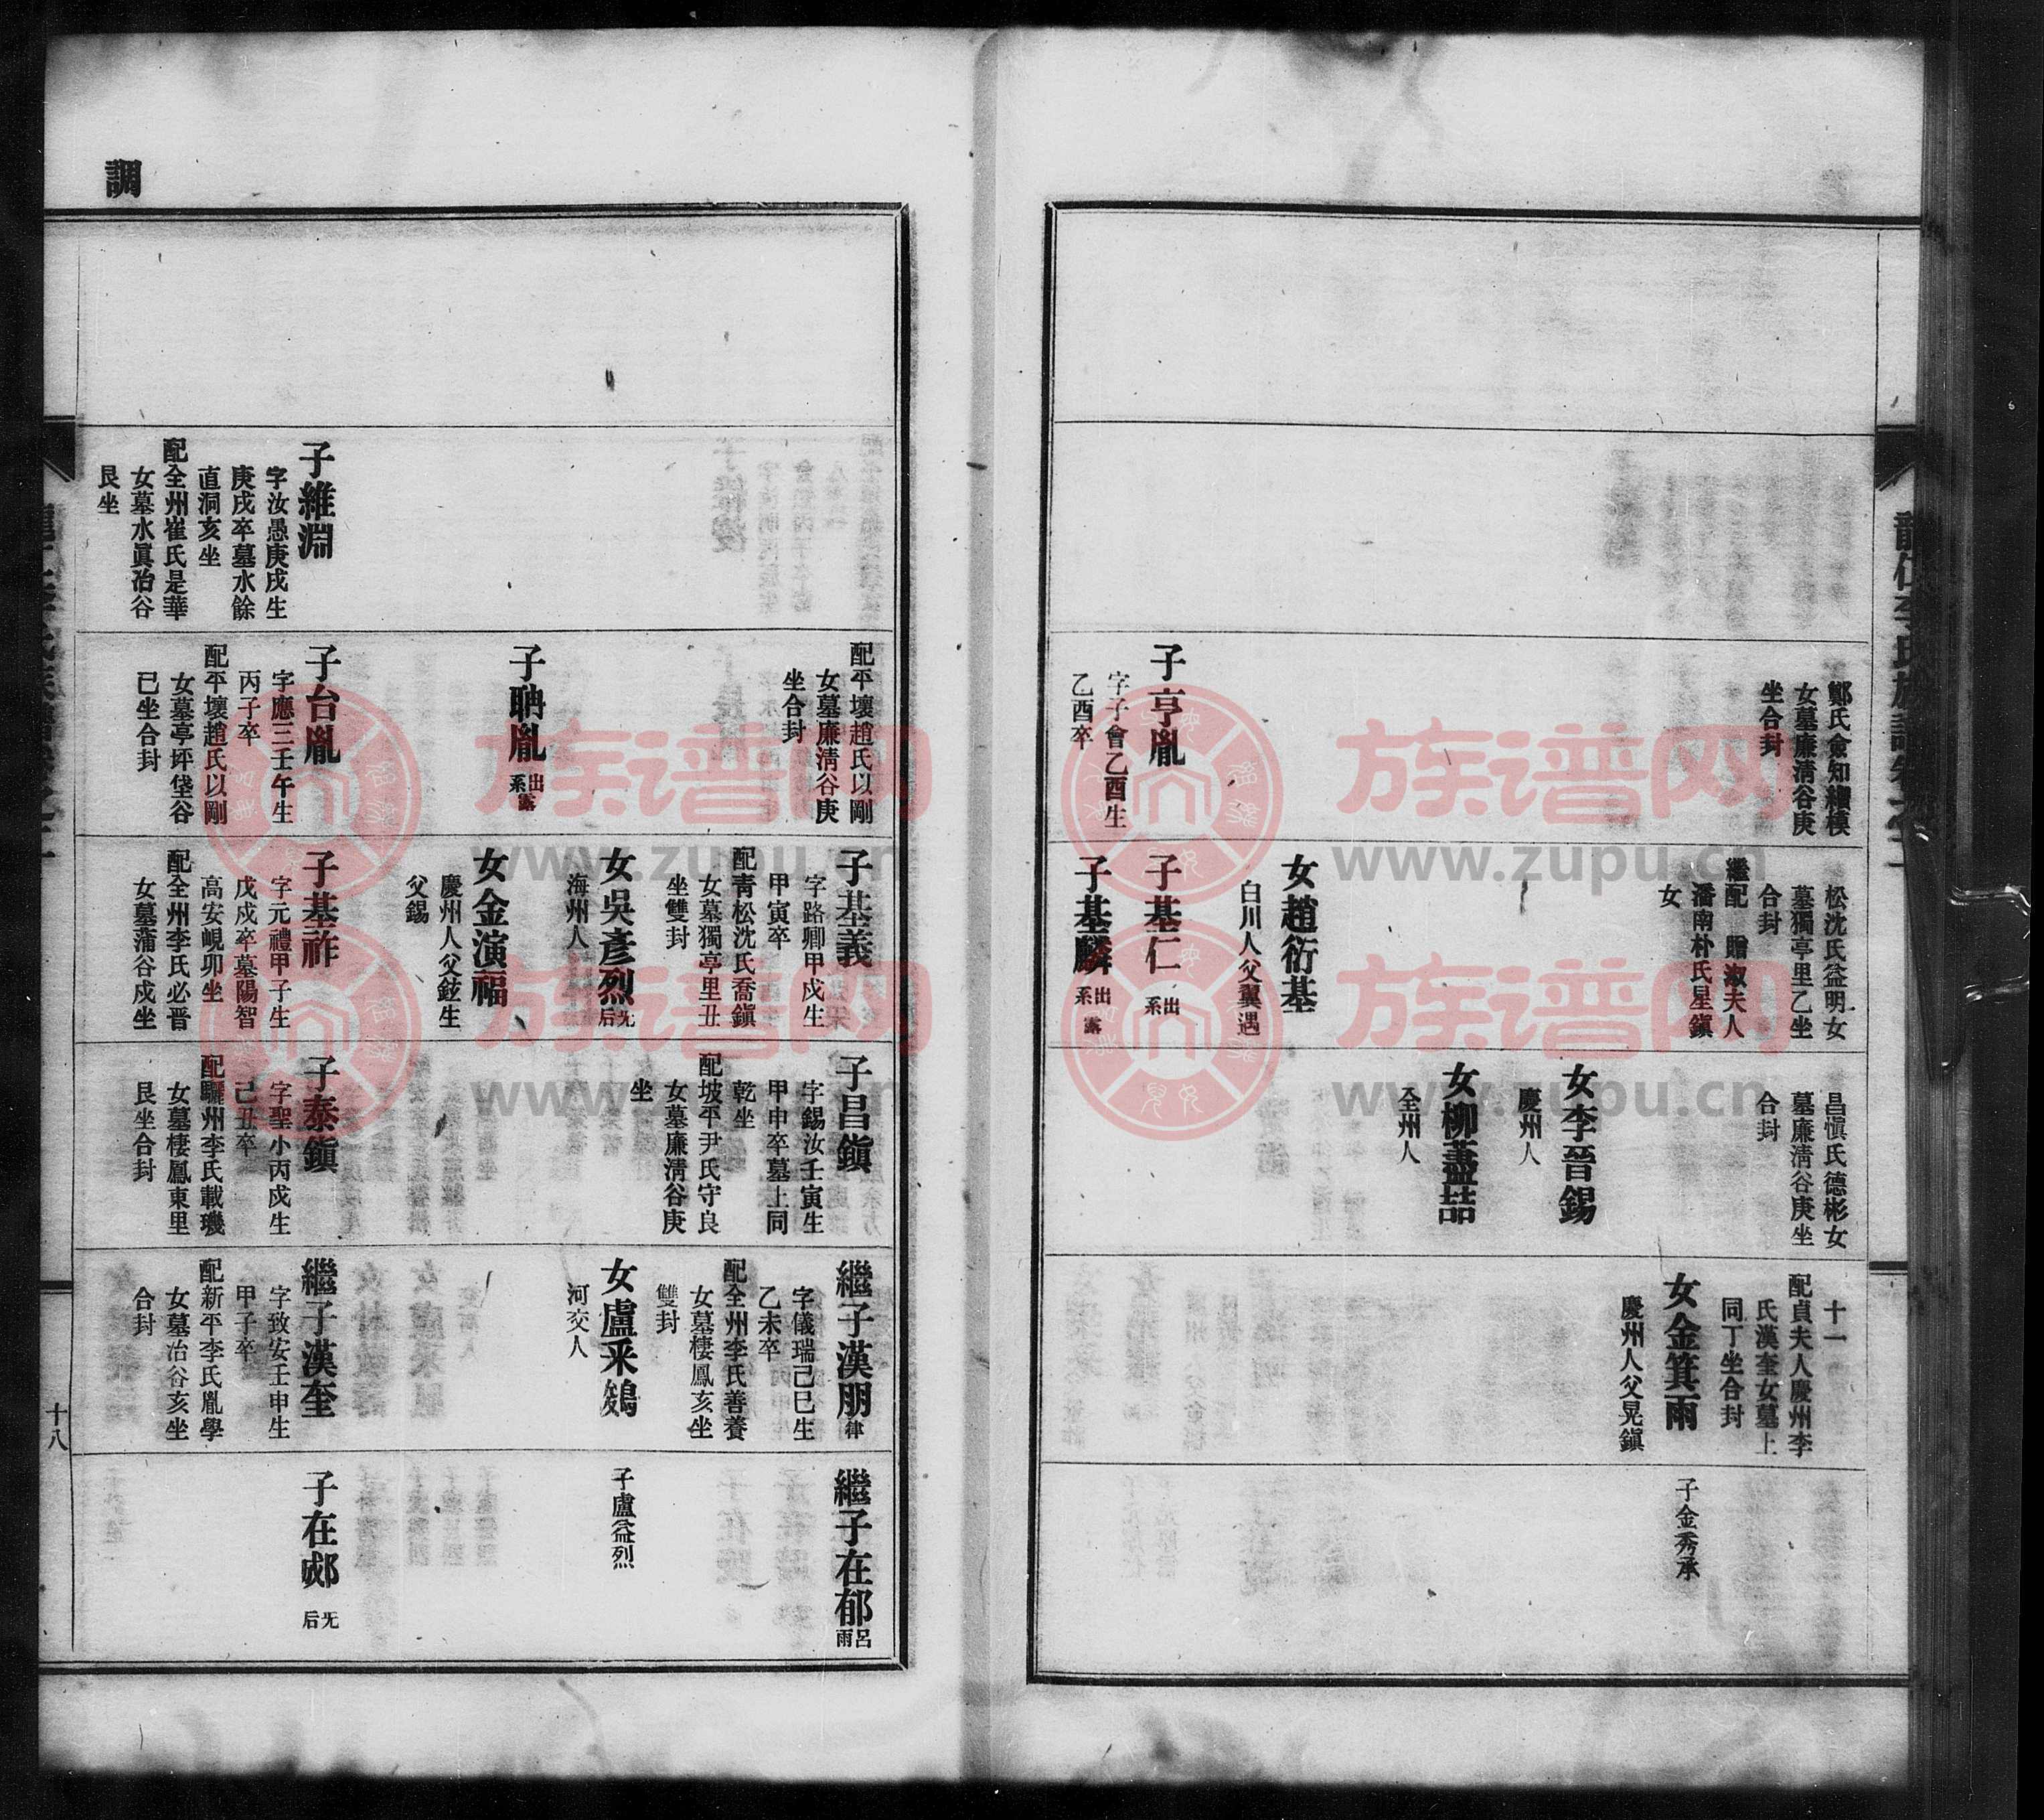 龍仁李氏族譜卷之二
鄭氏僉知纘模
女墓廉淸谷庚
坐合封
子亨胤
字子會乙酉生
乙酉卒
松沈氏益明女
墓獨亭里乙坐
合封
繼配 贈淑夫人
潘南朴氏星鎭
女
女趙衍基
白川人父翼遇
子基仁 出系
子基麟 出系 露
昌愼氏德彬女
墓廉淸谷庚坐
合封
女李晉錫
慶州人
女柳藎喆
全州人
十一
配貞夫人慶州李
氏漢奎女墓上
同丁坐合封
女金箕雨
慶州人父晃鎭
子金秀承
調
子維淵
字汝愚庚戌生
庚戌卒墓水餘
直洞亥坐
配全州崔氏是華
女墓水眞治谷
艮坐
配平壤趙氏以剛
女墓廉淸谷庚
坐合封
子聃胤 出系 露
子台胤
字應三壬午生
丙子卒
配平壤趙氏以剛
女墓亭坪垈谷
巳坐合封
子基義
字路卿甲戌生
甲寅卒
配靑松沈氏喬鎭
女墓獨亭里丑
坐雙封
女吳彥烈 旡后
海州人
女金演福
慶州人父鉉生
父錫
子基祚
字元禮甲子生
戊戌卒墓陽智
高安峴卯坐
配全州李氏必晋
女墓蒲谷戌坐
子昌鎭
字錫汝壬寅生
甲申卒墓上同
乾坐
配坡平尹氏守良
女墓廉淸谷庚
坐
子泰鎭
字聖小丙戌生
己丑卒
配驪州李氏載璣
女墓棲鳳東里
艮坐合封
繼子漢朋 律
字儀瑞己巳生
乙未卒
配全州李氏善養
女墓棲鳳亥坐
雙封
女盧采鷄
河交人
繼子漢奎
字致安壬申生
甲子卒
配新平李氏胤學
女墓治谷亥坐
合封
繼子在郁 呂雨
子盧益烈
子在郕 旡后
十八
族谱网
www.zupu.cn
族谱网
www.zupu.cn
族谱网
www.zupu.cn
族谱网
www.zupu.cn